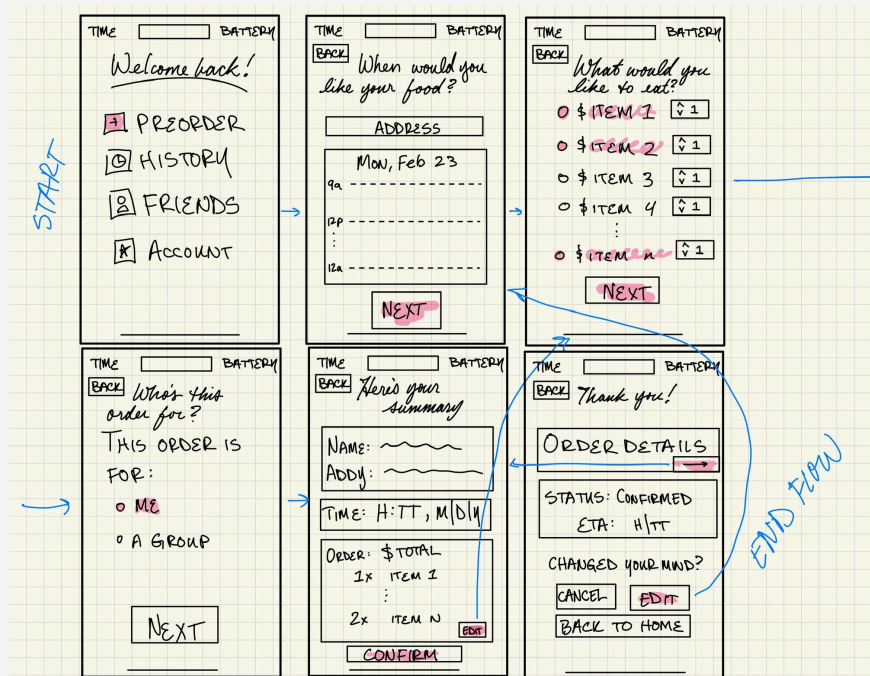 START
TIME BATTERY
Welcome back!
+ PREORDER
HISTORY
FRIENDS
ACCOUNT
TIME BATTERY
BACK
When would you
like your food?
ADDRESS
Mon, Feb 23
9a
12p
12a
NEXT
TIME BATTERY
BACK
What would you
like to eat?
$ ITEM 1 1
$ ITEM 2 1
$ ITEM 3 1
$ ITEM 4 1
$ ITEM n 1
NEXT
TIME BATTERY
BACK
Who's this
order for?
THIS ORDER IS
FOR:
ME
A GROUP
NEXT
TIME BATTERY
BACK
Here's your
summary
NAME:
ADDY:
TIME: H:TT, M|D|Y
ORDER: $TOTAL
1x ITEM 1
2x ITEM N
EDIT
CONFIRM
TIME BATTERY
BACK
Thank you!
ORDER DETAILS
STATUS: CONFIRMED
ETA: H/TT
CHANGED YOUR MIND?
CANCEL EDIT
BACK TO HOME
END FLOW